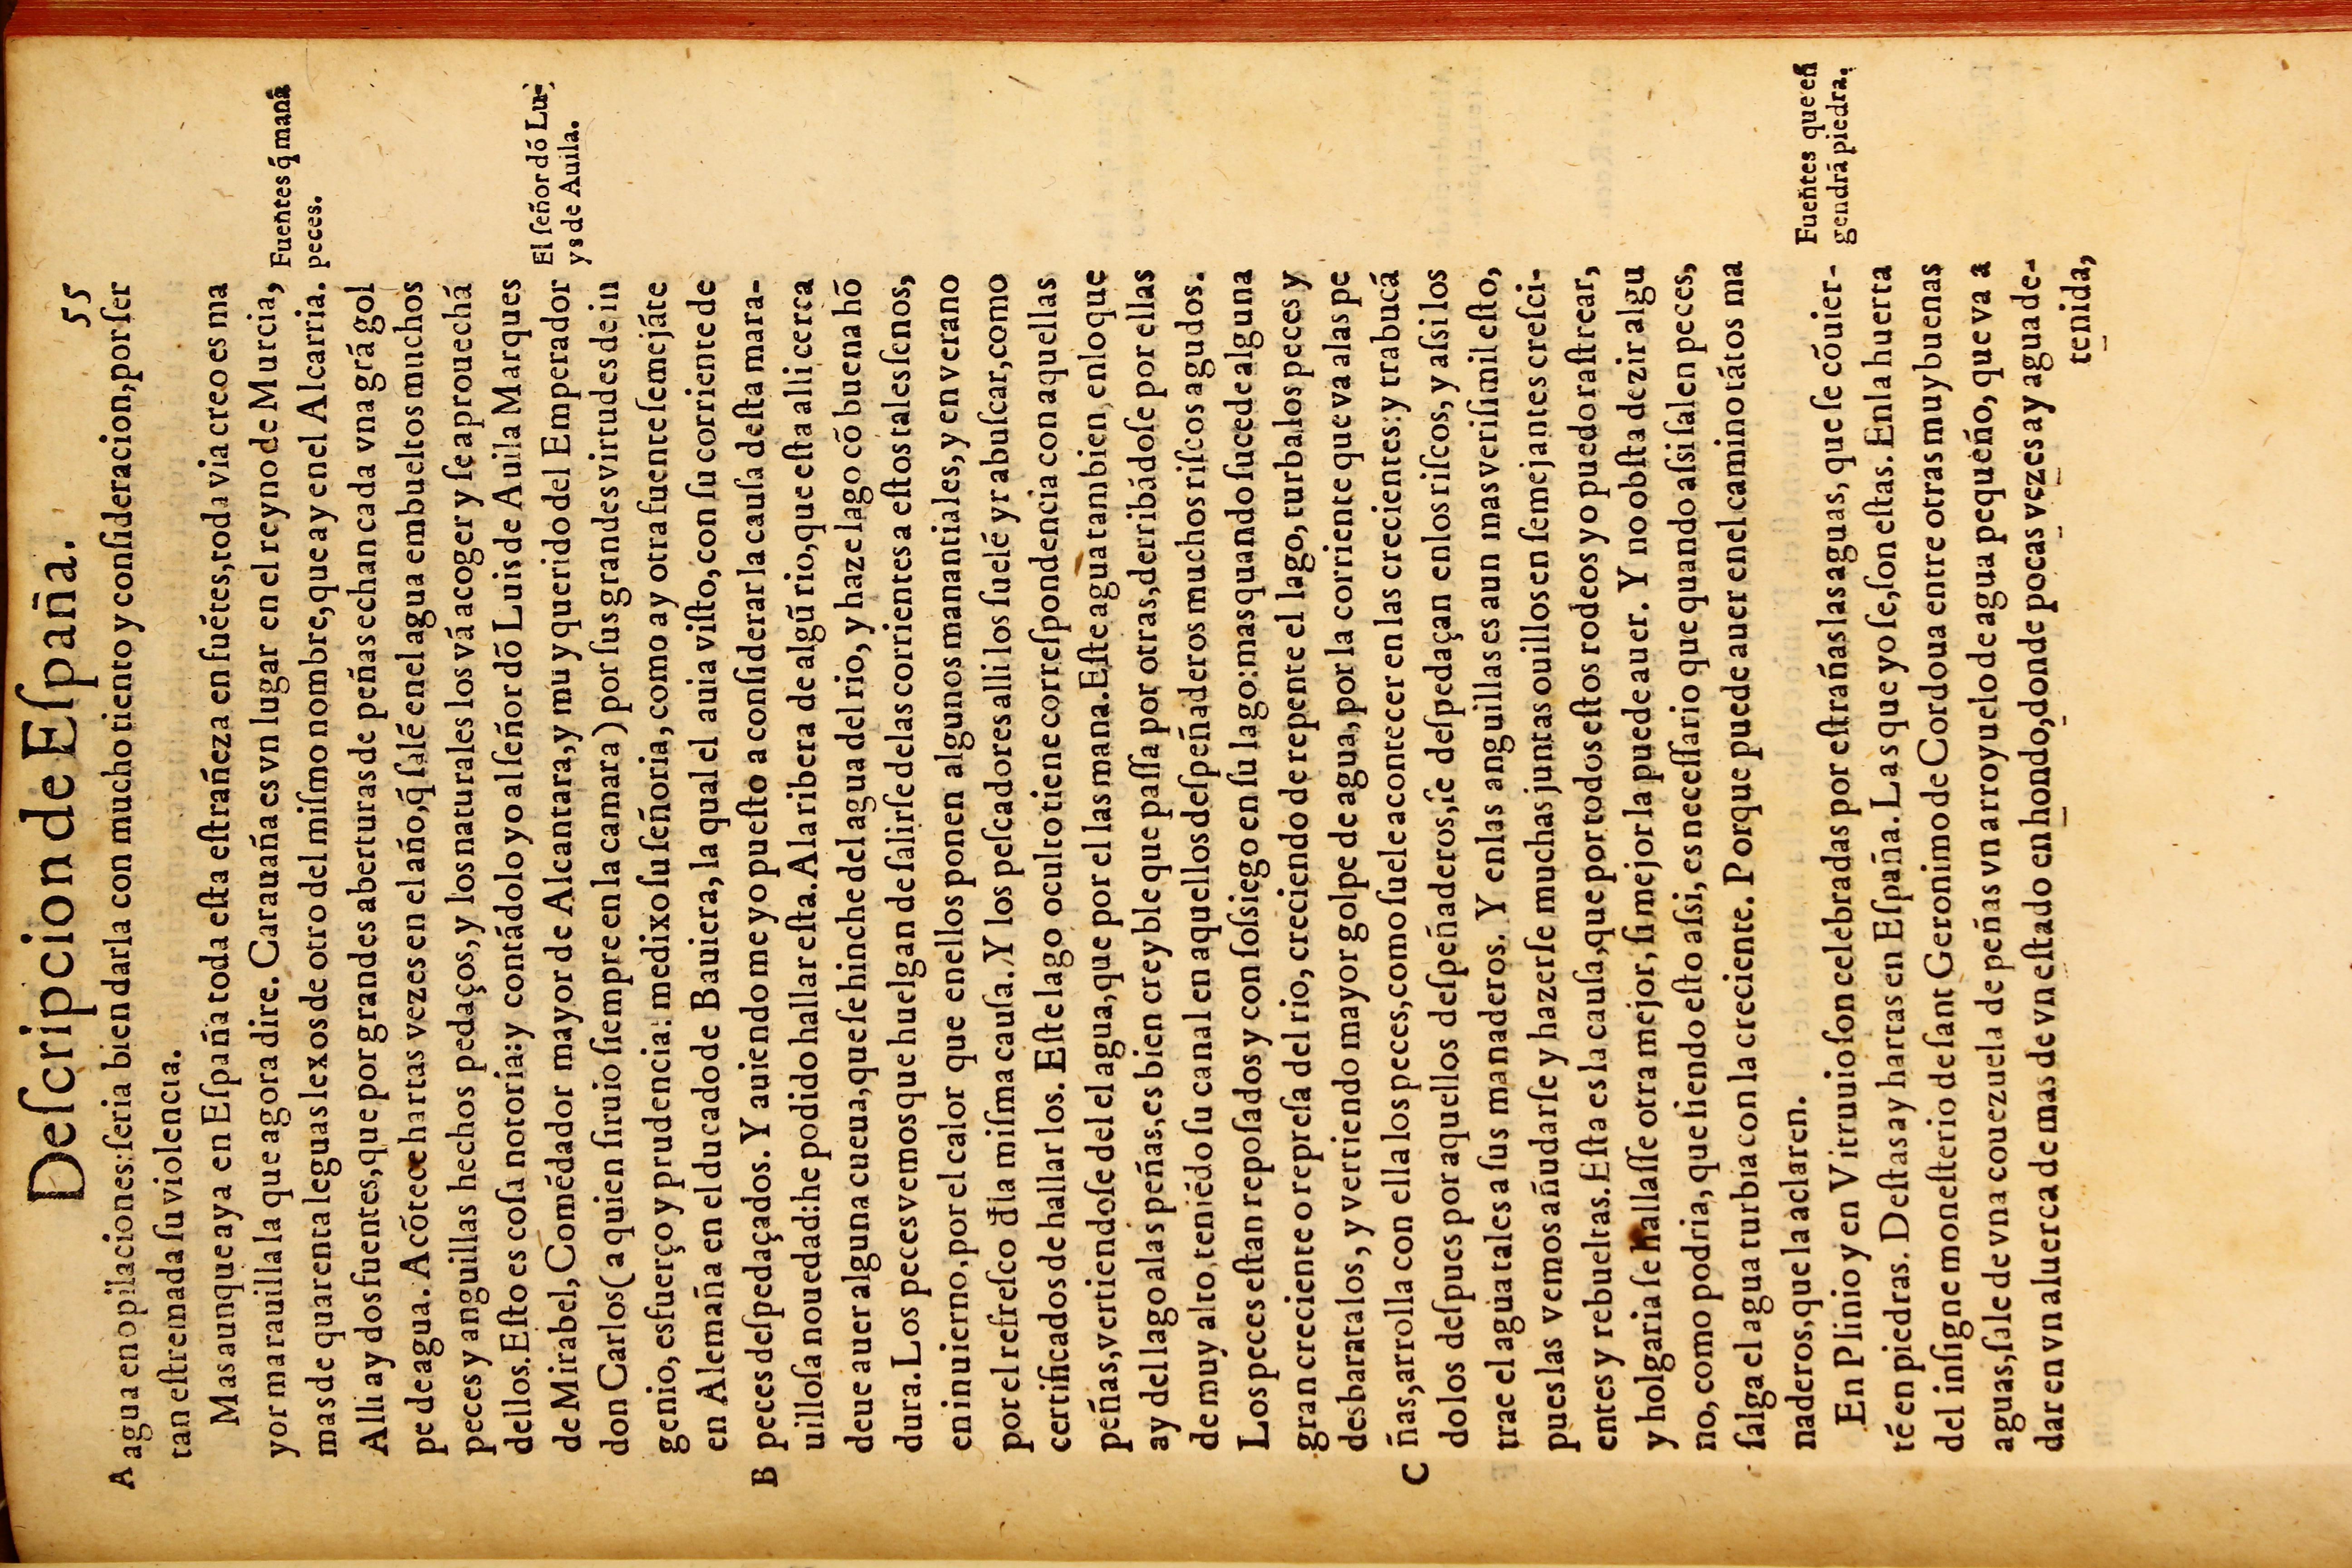 Deſcripcion de Eſpaña. 55
A agua en opilaciones: ſeria bien darla con mucho tiento y conſideracion, por ſer
tan eſtremada ſu violencia.
Mas aunque aya en Eſpaña toda eſta eſtrañeza en fuẽtes, toda via creo es ma
yor marauilla la que agora dire. Carauaña es vn lugar en el reyno de Murcia,
Fuentes q̃ manã
peces.
mas de quarenta leguas lexos de otro del miſmo nombre, que ay en el Alcarria.
Alli ay dos fuentes, que por grandes aberturas de peñas echan cada vna grã gol
pe de agua. Acõtece hartas vezes en el año, q̃ ſalẽ en el agua embueltos muchos
peces y anguillas hechos pedaços, y los naturales los vã acoger y ſe aprouechã
dellos. Eſto es coſa notoria: y contãdolo yo al ſeñor dõ Luis de Auila Marques
El ſeñor dõ Lu-
ys de Auila.
de Mirabel, Comẽdador mayor de Alcantara, y muy querido del Emperador
don Carlos (a quien ſiruio ſiempre en la camara) por ſus grandes virtudes de in
genio, esfuerço y prudencia: me dixo ſu ſeñoria, como ay otra fuente ſemejãte
en Alemaña en el ducado de Bauiera, la qual el auia viſto, con ſu corriente de
B peces deſpedaçados. Y auiendo me yo pueſto a conſiderar la cauſa deſta mara-
uilloſa nouedad: he podido hallar eſta. A la ribera de algũ rio, que eſta alli cerca
deue auer alguna cueua, que ſe hinche del agua del rio, y haze lago cõ buena hõ
dura. Los peces vemos que huelgan de ſalirſe de las corrientes a eſtos tales ſenos,
en inuierno, por el calor que en ellos ponen algunos manantiales, y en verano
por el refreſco d̃la miſma cauſa. Y los peſcadores alli los ſuelẽ yr a buſcar, como
certificados de hallar los. Eſte lago oculto tiene correſpondencia con aquellas
peñas, vertiendoſe del el agua, que por el las mana. Eſte agua tambien, en lo que
ay del lago a las peñas, es bien creyble que paſſa por otras, derribãdoſe por ellas
de muy alto, teniẽdo ſu canal en aquellos deſpeñaderos muchos riſcos agudos.
Los peces eſtan repoſados y con ſoſsiego en ſu lago: mas quando ſucede alguna
gran creciente o repreſa del rio, creciendo de repente el lago, turba los peces y
desbarata los, y vertiendo mayor golpe de agua, por la corriente que va a las pe
C ñas, arrolla con ella los peces, como ſuele acontecer en las crecientes: y trabucã
do los deſpues por aquellos deſpeñaderos, ſe deſpedaçan en los riſcos, y aſsi los
trae el agua tales a ſus manaderos. Y en las anguillas es aun mas veriſimil eſto,
pues las vemos añudarſe y hazerſe muchas juntas ouillos en ſemejantes creſci-
entes y rebueltas. Eſta es la cauſa, que por todos eſtos rodeos yo puedo raſtrear,
y holgaria ſe hallaſſe otra mejor, ſi mejor la puede auer. Y no obſta dezir algu
no, como podria, que ſiendo eſto aſsi, es neceſſario que quando aſsi ſalen peces,
ſalga el agua turbia con la creciente. Porque puede auer en el camino tãtos ma
naderos, que la aclaren.
En Plinio y en Vitruuio ſon celebradas por eſtrañas las aguas, que ſe cõuier-
Fuentes que en
gendrã piedra.
tẽ en piedras. Deſtas ay hartas en Eſpaña. Las que yo ſe, ſon eſtas. En la huerta
del inſigne moneſterio de ſant Geronimo de Cordoua entre otras muy buenas
aguas, ſale de vna couezuela de peñas vn arroyuelo de agua pequeño, que va a
dar en vn aluerca de mas de vn eſtado en hondo, donde pocas vezes ay agua de-
tenida,